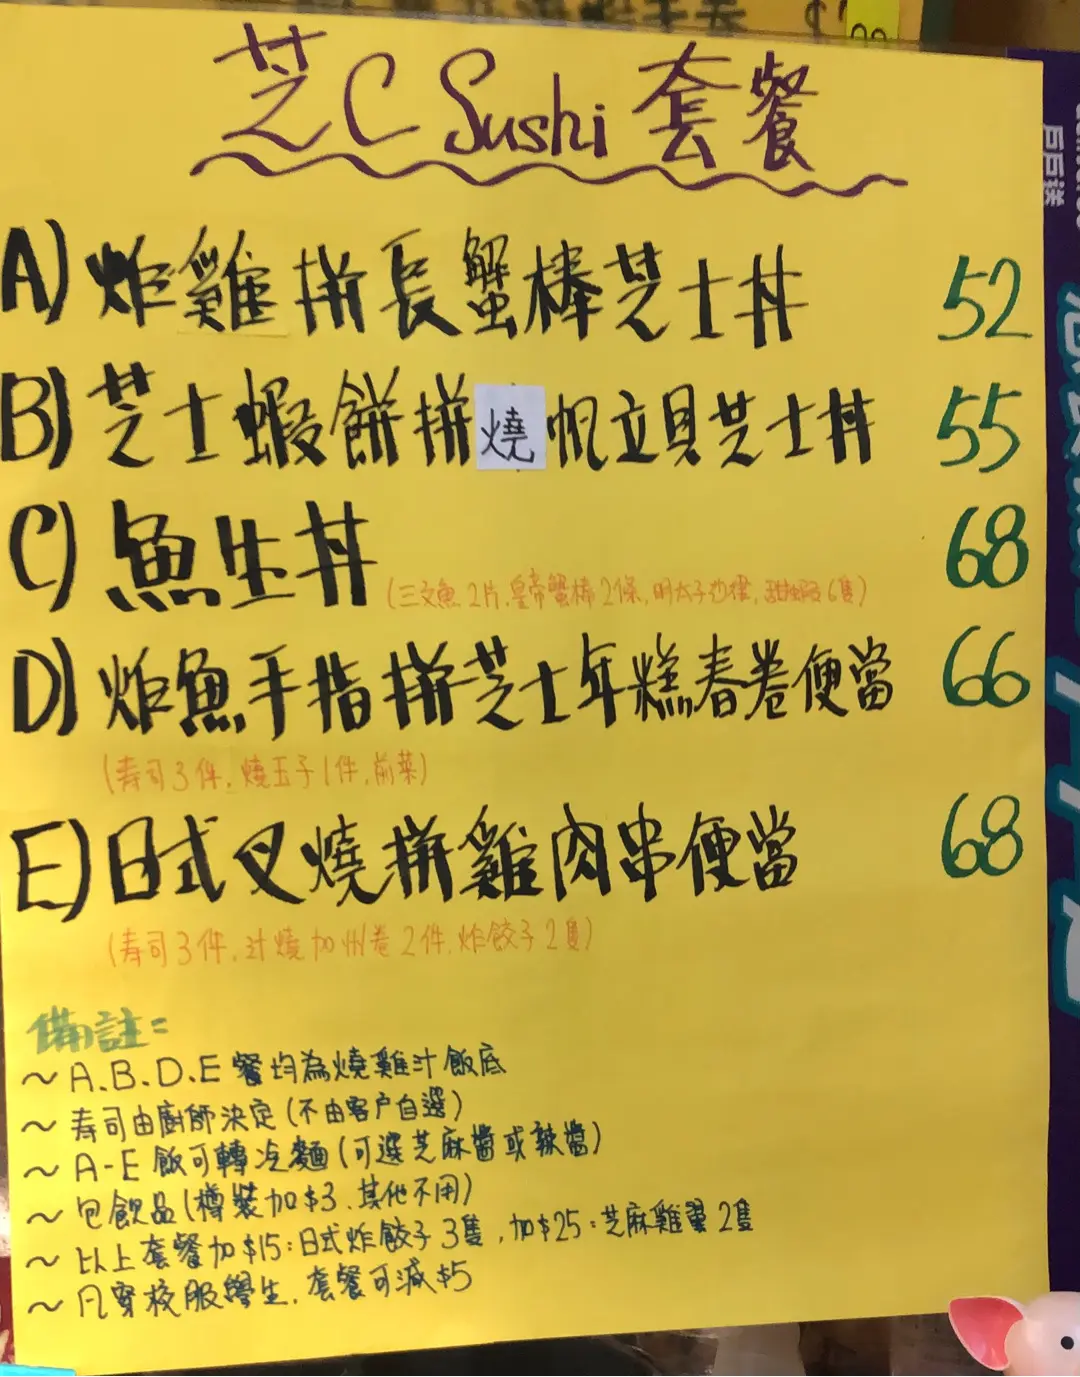 芝C Sushi 套餐
A) 炸雞拼長蟹棒芝士丼 52
B) 芝士蝦餅拼燒帆立貝芝士丼 55
C) 魚生丼 68
(三文魚2片,皇帝蟹棒2條,明太子,甜蝦6隻)
D) 炸魚手指拼芝士年糕春卷便當 66
(寿司3件,燒玉子1件,前菜)
E) 日式叉燒拼雞肉串便當 68
(寿司3件,汁燒加州卷2件,炸餃子2隻)
備註:
~ A.B.D.E 餐均為燒雞汁飯底
~ 寿司由廚師決定(不由客戶自選)
~ A-E 飯可轉冷麵(可選芝麻醬或辣醬)
~ 包飲品(樽裝加$3,其他不用)
~ 以上套餐加$15:日式炸餃子3隻,加$25:芝麻雞翼2隻
~ 凡穿校服學生,套餐可減$5
戶戶送